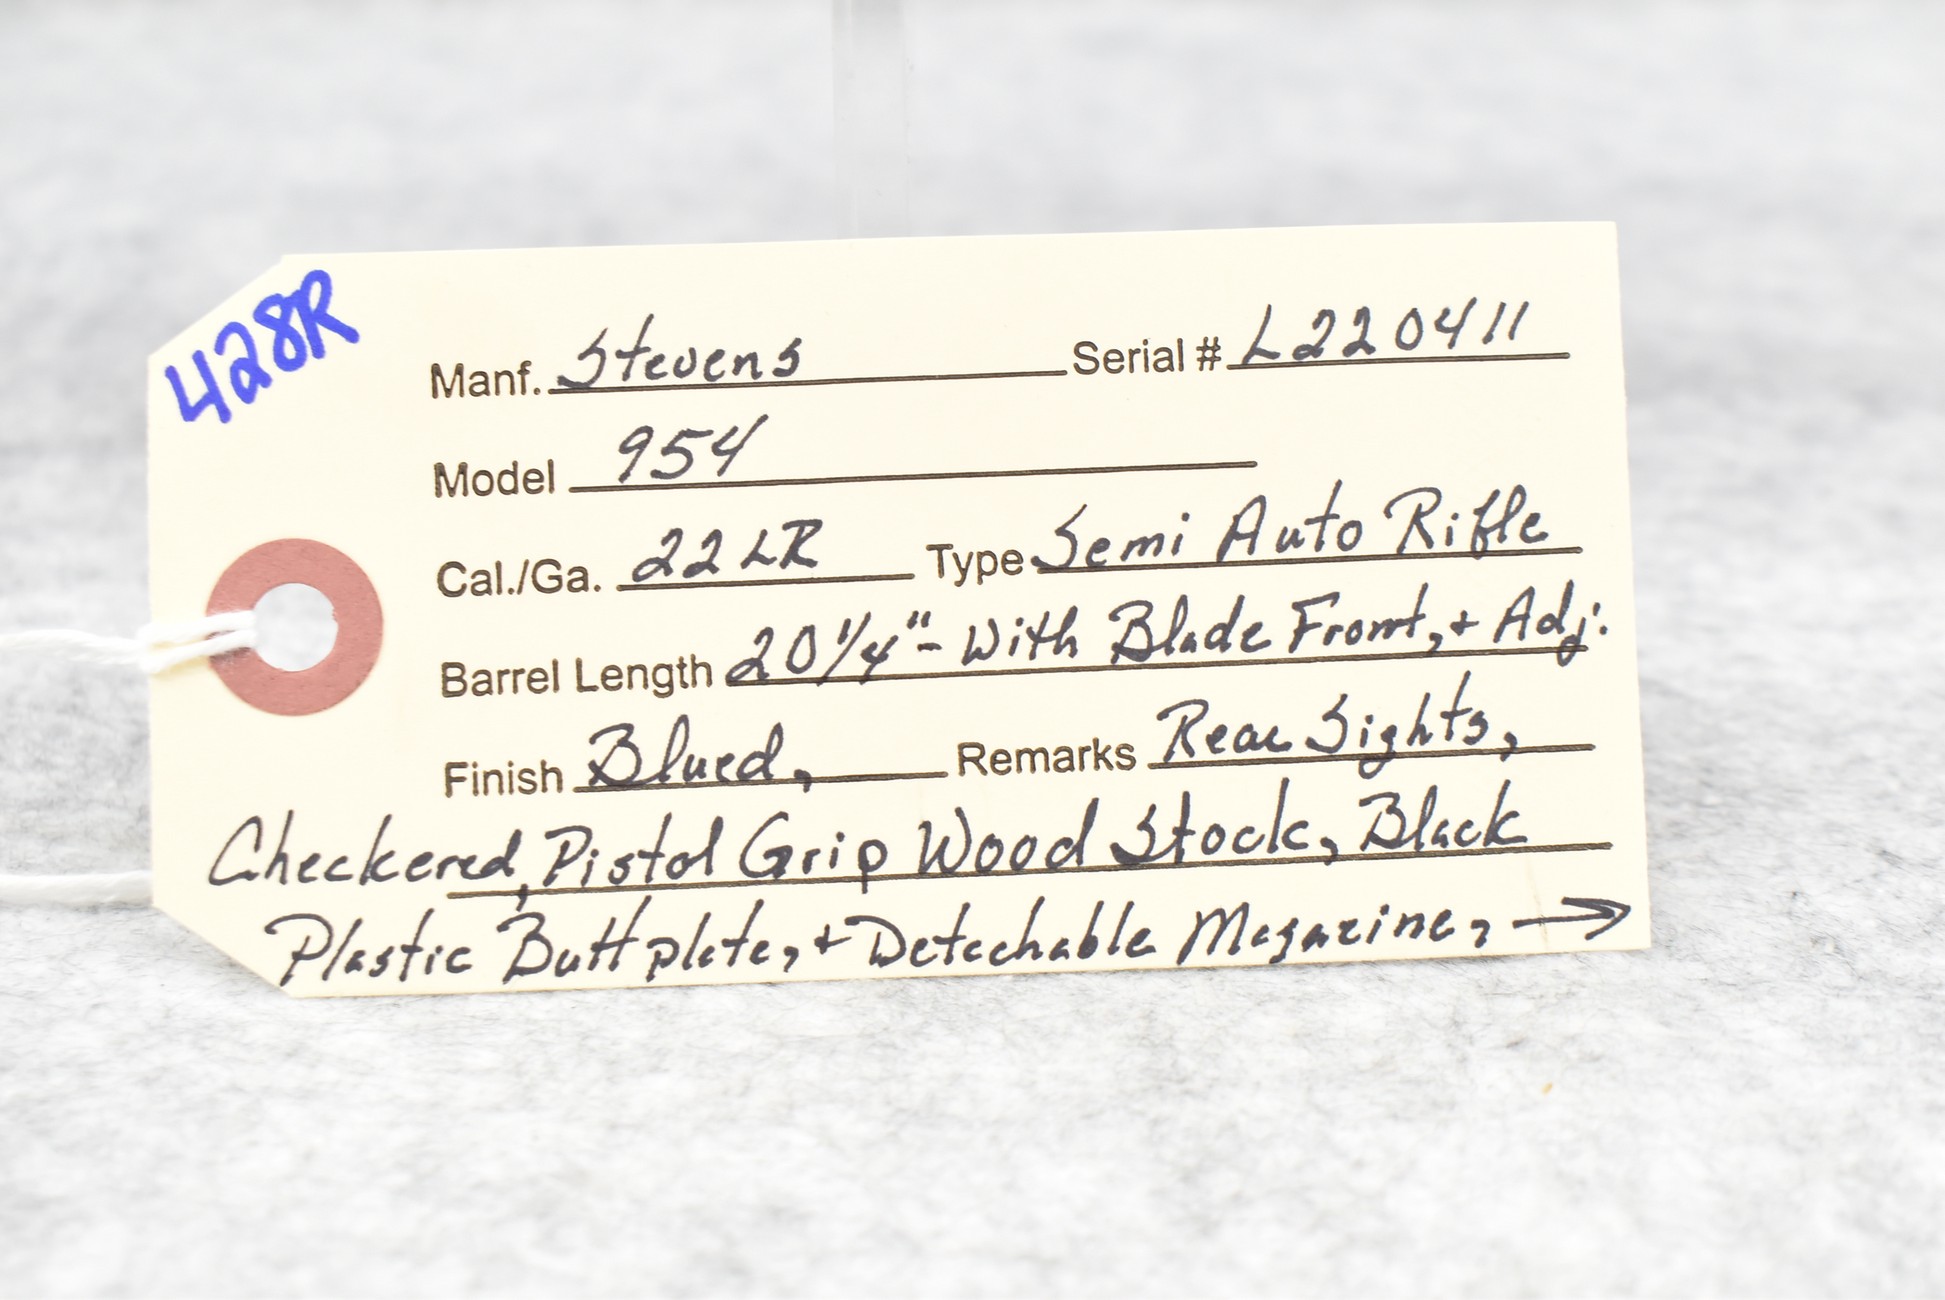 428R
Manf. Stevens Serial # L220411
Model 954
Cal./Ga. 22 LR Type Semi Auto Rifle
Barrel Length 20 1/4" - With Blade Front, + Adj.
Finish Blued, Remarks Rear Sights,
Checkered, Pistol Grip Wood Stock, Black
Plastic Buttplate, + Detachable Magazine, →